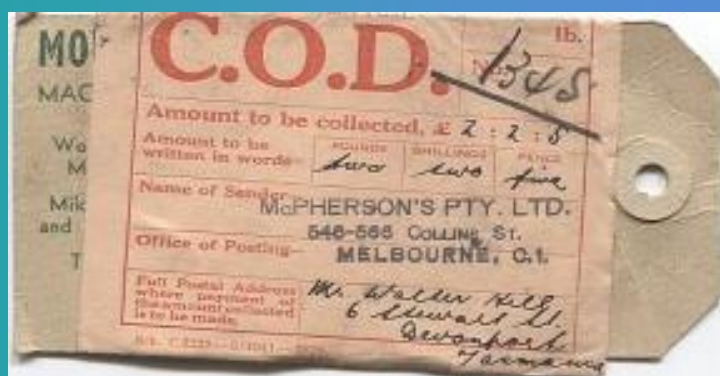 MO
MAC
Wo
M
Milk
and
T
lb.
C.O.D.
No. 1345
Amount to be collected, £ 2 : 2 : 5
Amount to be
written in words—
POUNDS SHILLINGS PENCE
two two five
Name of Sender
McPHERSON'S PTY. LTD.
546-566 COLLINS ST.
Office of Posting—
MELBOURNE, C.1.
Full Postal Address
where payment of
the amount collected
is to be made.
Mr. Walter Hill
6 Stewart St.
Devonport
Tasmania